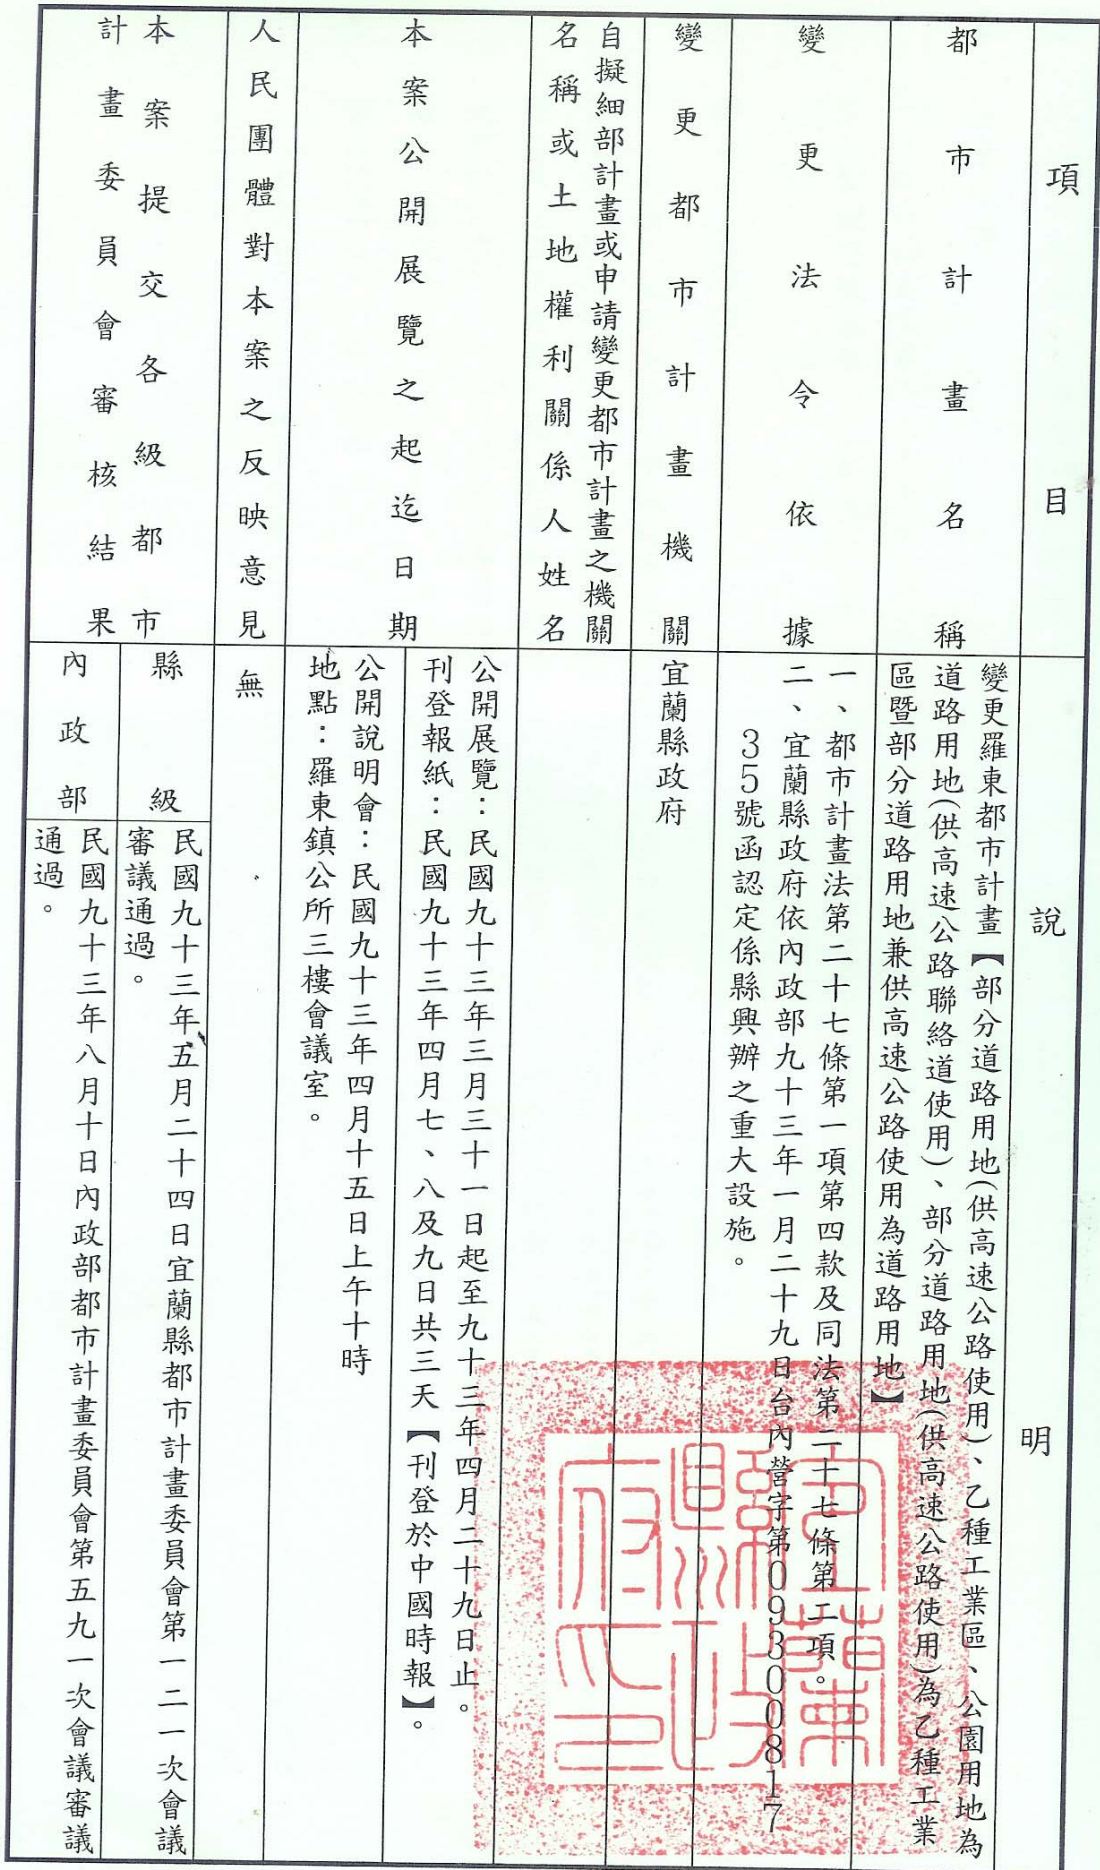 項目
說明
都市計畫名稱
變更羅東都市計畫【部分道路用地(供高速公路使用)、乙種工業區、公園用地為
道路用地(供高速公路聯絡道使用)、部分道路用地(供高速公路使用)為乙種工業
區暨部分道路用地兼供高速公路使用為道路用地】
變更法令依據
一、都市計畫法第二十七條第一項第四款及同法第二十七條第二項。
二、宜蘭縣政府依內政部九十三年一月二十九日台內營字第0930081７
35號函認定係縣興辦之重大設施。
變更都市計畫機關
宜蘭縣政府
自擬細部計畫或申請變更都市計畫之機關
名稱或土地權利關係人姓名
本案公開展覽之起迄日期
公開展覽：民國九十三年三月三十一日起至九十三年四月二十九日止。
刊登報紙：民國九十三年四月七、八及九日共三天【刊登於中國時報】。
公開說明會：民國九十三年四月十五日上午十時
地點：羅東鎮公所三樓會議室。
人民團體對本案之反映意見
無
本案提交各級都市
計畫委員會審核結果
縣級
民國九十三年五月二十四日宜蘭縣都市計畫委員會第一二一次會議
審議通過。
內政部
民國九十三年八月十日內政部都市計畫委員會第五九一次會議審議
通過。
宜蘭
縣政
府印